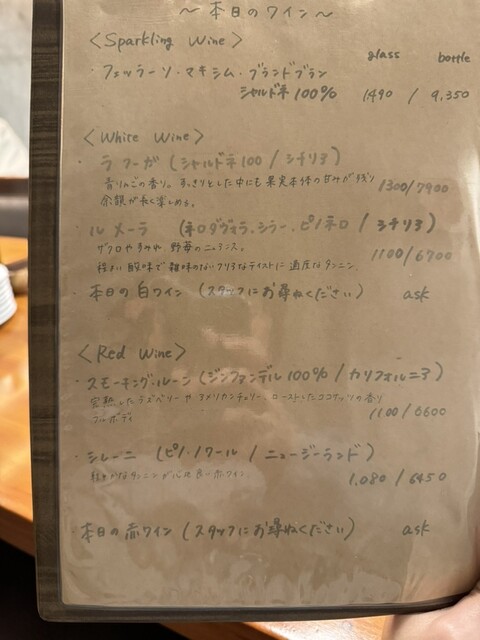 ～本日のワイン～
<Sparkling Wine>
glass bottle
・フェッラーソ・マキシム・ブランドブラン
シャルドネ 100% 1490 / 9,350
<White Wine>
・ラ フーガ (シャルドネ100 / シチリア)
青りんごの香り。すっきりとした中にも果実本体の甘みが残り 1300/7900
余韻が長く楽しめる。
・ル メーラ (ネロダヴォラ、シラー、ピノネロ / シチリア)
ザクロやすみれ 野苺のニュアンス。
程よい酸味で雑味のないクリアなテイストに適度なタンニン 1100/6700
・本日の白ワイン (スタッフにお尋ねください) ask
<Red Wine>
・スモーキングルーン (ジンファンデル100% / カリフォルニア)
完熟したラズベリーやアメリカンチェリー ローストしたココナッツの香り
フルボディ 1100/6600
・シレーニ (ピノ・ノワール / ニュージーランド)
なタンニンが 赤ワイン 1,080 / 6450
・本日の赤ワイン (スタッフにお尋ねください) ask